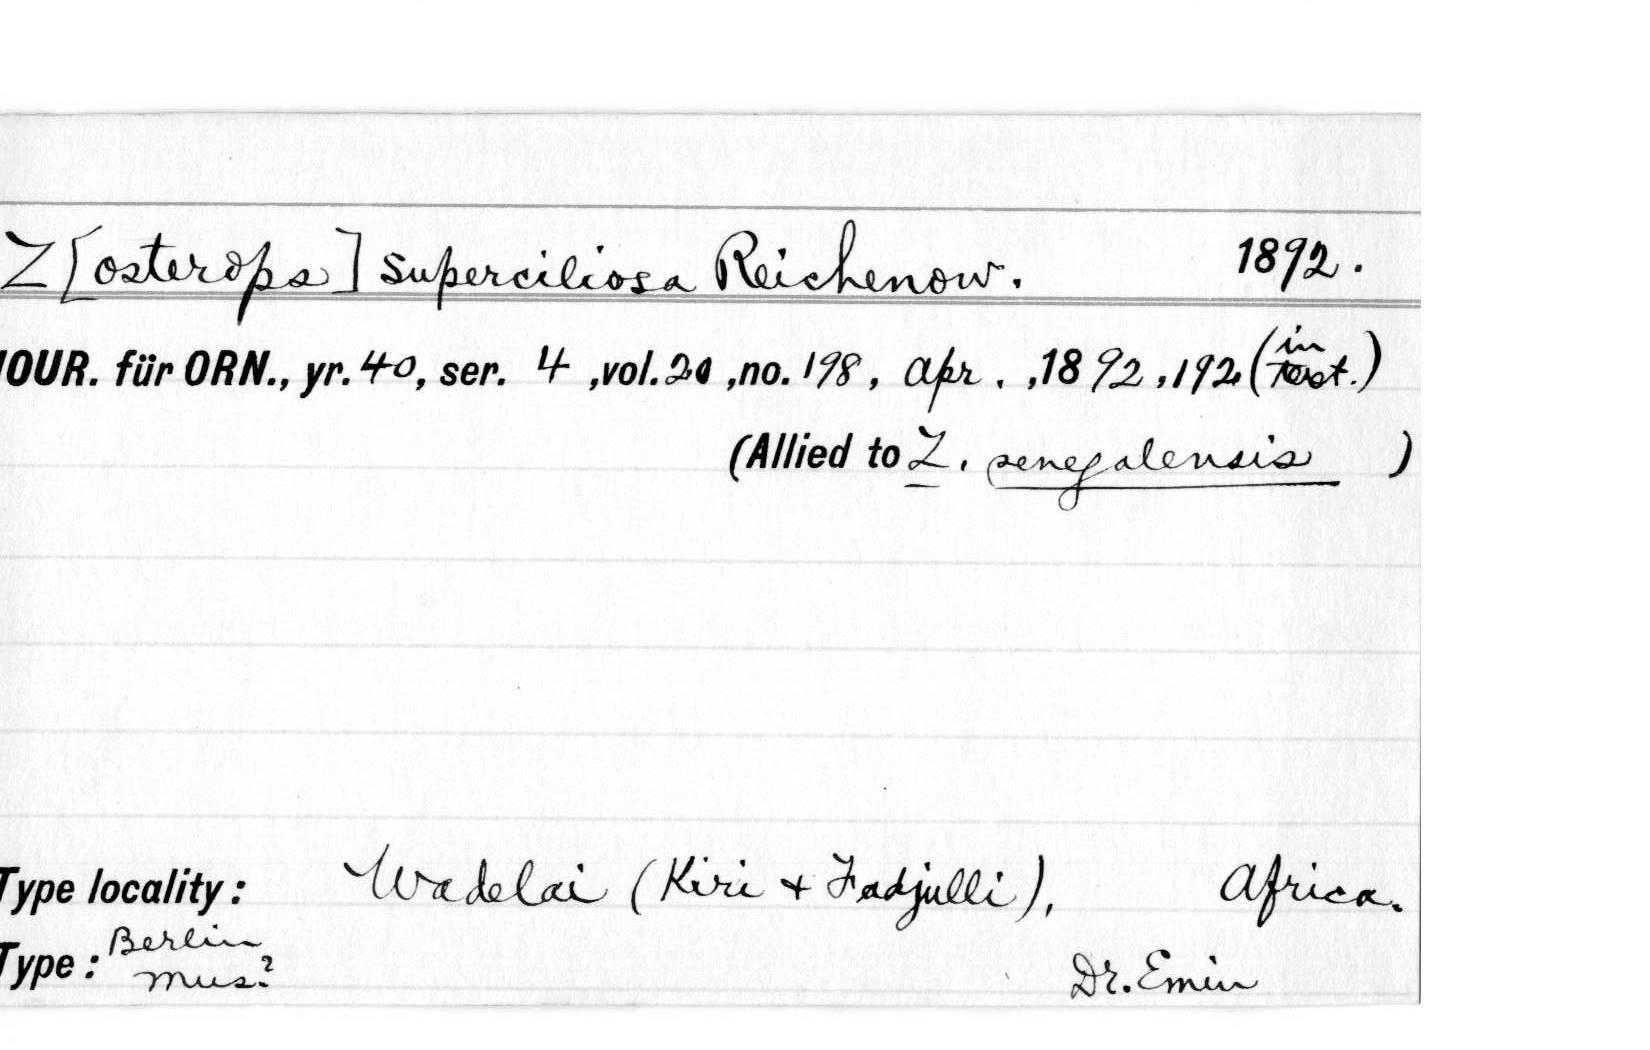 Z[osterops] superciliosa Reichenow. 1892.
JOUR. für ORN., yr. 40, ser. 4, vol. 20, no. 198, Apr., 1892, 192 (in text.)
(Allied to Z. senegalensis)
Type locality: Wadelai (Kiri + Fadjulli), Africa.
Type: Berlin Mus? Dr. Emin